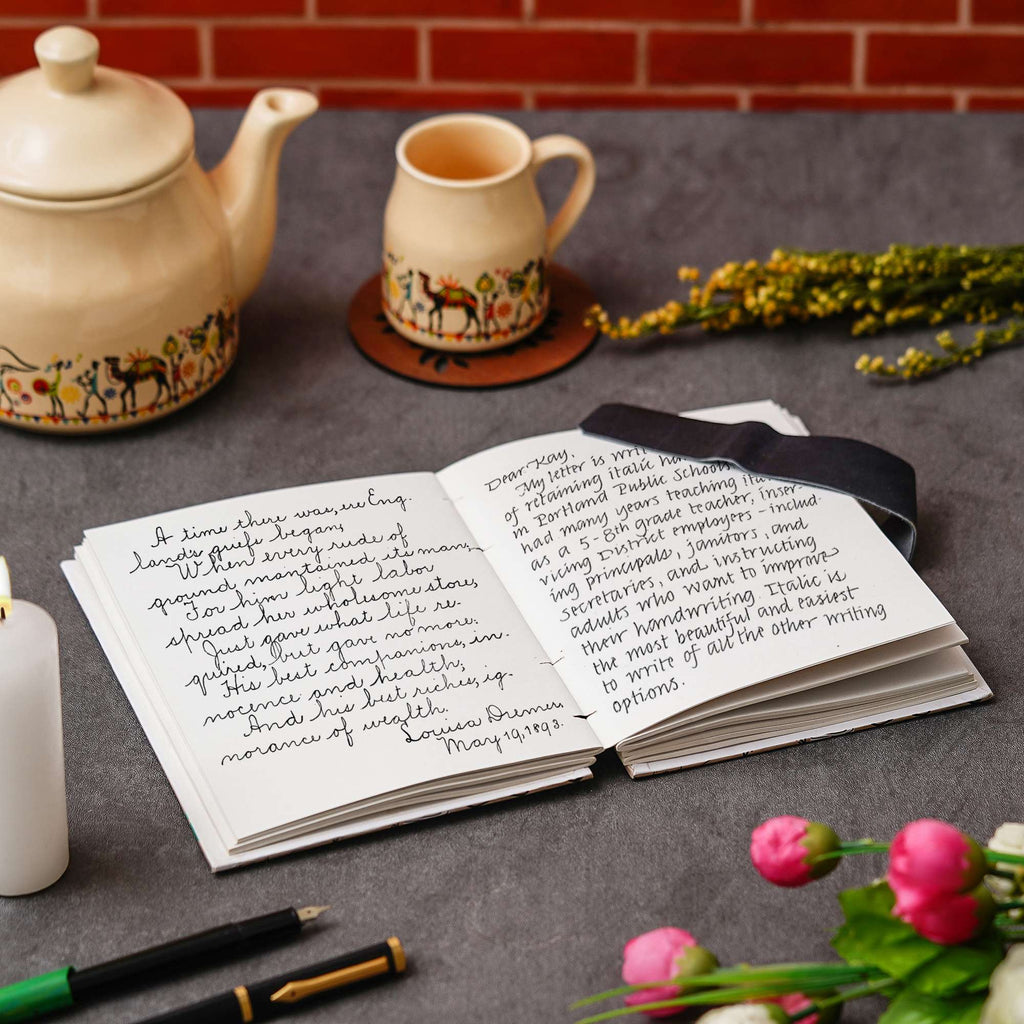 A time there was, ere Eng.
land's griefs began,
When every rude of
ground maintained its man;
For him light labor
spread her wholesome store,
Just gave what life re-
quired, but gave no more.
His best companions, in-
nocence and health;
And his best riches, ig-
norance of wealth.
Louisa Diemer
May 19, 1893.
Dear Kay,
My letter is
of retaining italic
in Portland Public Schools
had many years teaching
as a 5-8th grade teacher, inser-
vicing District employees - includ
ing principals, janitors, and
secretaries, and instructing
adults who want to improve
their handwriting. Italic is
the most beautiful and easiest
to write of all the other writing
options.